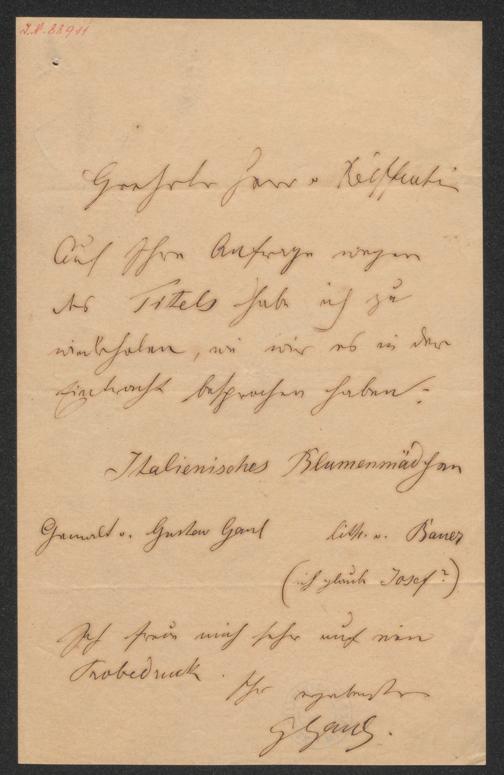 I.N. 88911
Geehrter Herr v.
Auf Ihre Anfrage wegen
des Titels habe ich zu
wiederholen, wie wir es in der
Eintracht besprochen haben:
Italienisches Blumenmädchen
Gemalt v. Gustav Gaul lith. v. Bauer
(ich glaube Josef?)
Ich freue mich sehr auf den
Probedruck.
Ihr ergebenster
G Gaul.